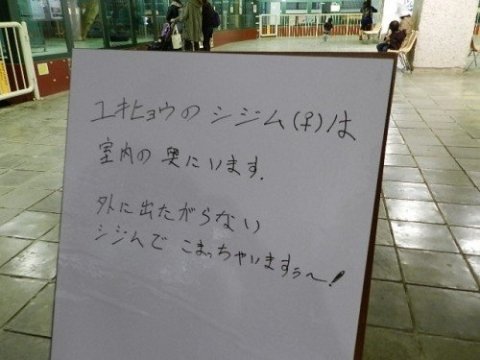 ユキヒョウの シジム(♀)は
室内の 奥にいます.
外に出たがらない
シジムで こまっちゃいますぅ〜!